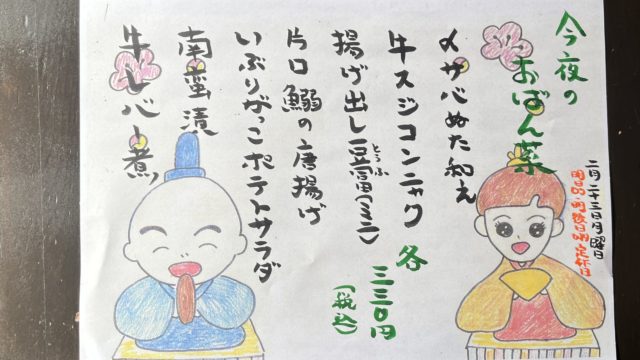 今夜の
おばん菜
二月二十三日月曜日
〆サバぬた和え
牛スジコンニャク
揚げ出し豆富(ミニ)
とうふ
片口鰯の唐揚げ
いぶりがっこポテトサラダ
南蛮漬
牛レバー煮
各
三三〇円
(税込)